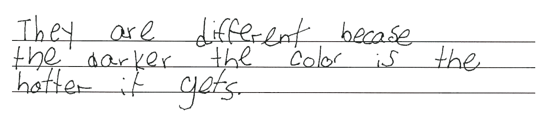 They are different becase
the darker the color is the
hotter it gets.